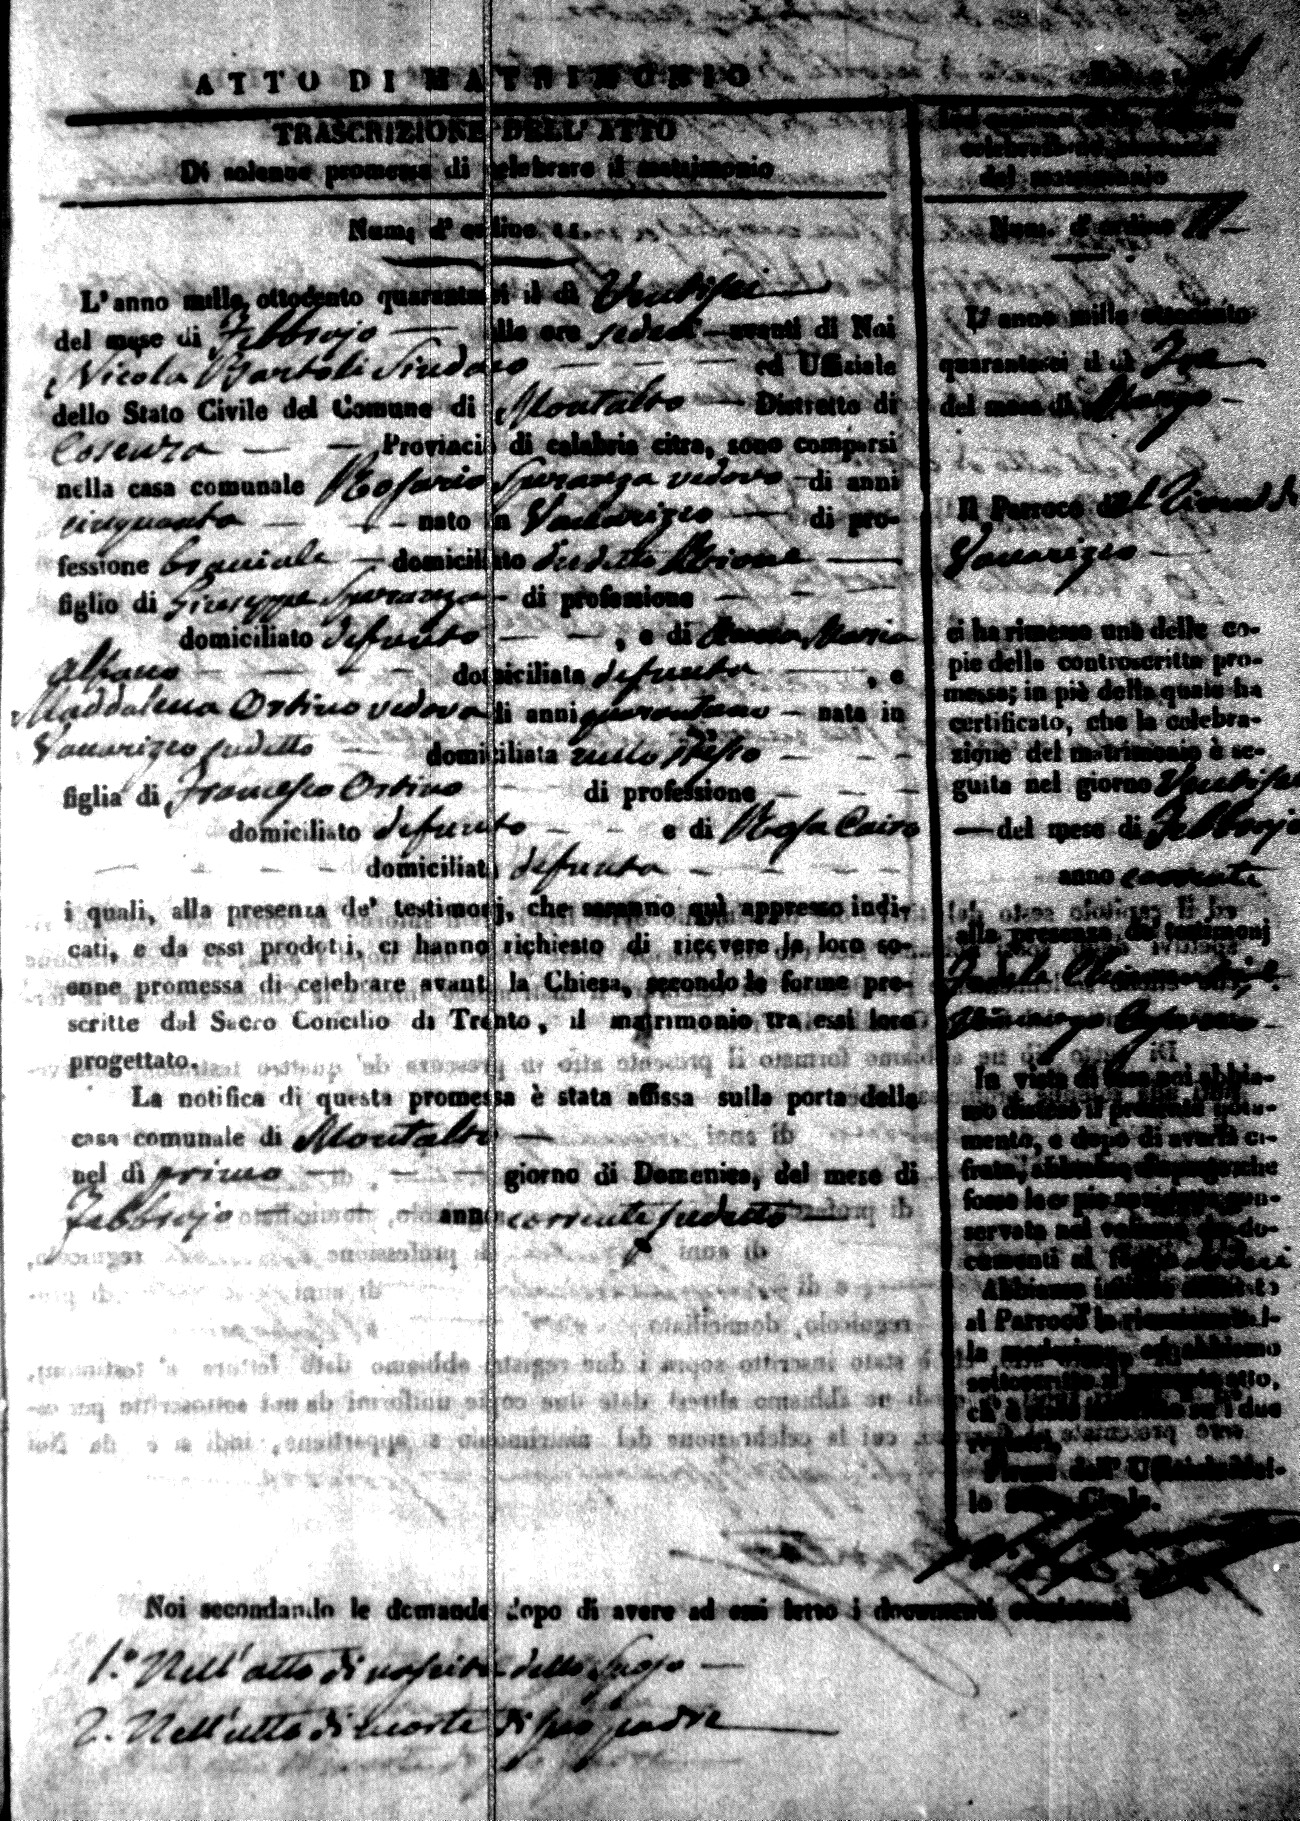 ATTO DI MATRIMONIO
TRASCRIZIONE DELL' ATTO
Di solenne promessa di celebrare il matrimonio
Num. d' ordine 11.
L'anno mille ottocento quarantasei il dì Ventisei
del mese di Febbrajo alle ore sedeci avanti di Noi
Nicola Bartoli Sindaco ed Uffiziale
dello Stato Civile del Comune di Montalto Distretto di
Cosenza Provincia di calabria citra, sono comparsi
nella casa comunale Rosario Speranza vedovo di anni
cinquanta nato in Vaccarizzo di pro-
fessione bracciale domiciliato
figlio di Giuseppe Speranza di professione
domiciliato defunto , e di Anna Maria
Alfano domiciliata defunta , e
Maddalena Ortino vedova di anni nata in
Vaccarizzo sudetto domiciliata nello stesso
figlia di Francesco Ortino di professione
domiciliato defunto e di Rosa Cairo
domiciliata defunta
i quali, alla presenza de' testimonj, che saranno quì appresso indi-
cati, e da essi prodotti, ci hanno richiesto di ricevere la loro so-
enne promessa di celebrare avanti la Chiesa, secondo le forme pre-
scritte dal Sacro Concilio di Trento, il matrimonio tra essi loro
progettato.
La notifica di questa promessa è stata affissa sulla porta della
casa comunale di Montalto
nel dì primo giorno di Domenica, del mese di
Febbrajo anno corrente sudetto
Noi secondando le domande dopo di avere ad essi letto i documenti consistenti
1.° Nell'atto di nascita dello sposo
2. Nell'atto di morte di suo padre
celebrato
del matrimonio
Num. d' ordine 11
L' anno mille ottocento
quarantasei il dì Tre
del mese di Marzo
Il Parroco
Vaccarizzo
ci ha rimesso una delle co-
pie della controscritta pro-
messa; in piè della quale ha
certificato, che la celebra-
zione del matrimonio è se-
guita nel giorno Ventisei
del mese di Febbrajo
anno corrente
alla presenza de' testimonj
In vista di essa noi abbia-
mo disteso il presente notа-
mento, e dopo di averla ci-
frata, abbiamo disposto che
fosse la copia anzidetta con-
servata nel volume de' do-
cumenti al foglio
Abbiamo inoltre accusato
al Parroco la ricezione del-
la medesima, ed abbiamo
sottoscritto il presente atto,
ch' è stato inscritto su i due
registri.
Firma dell' Uffiziale del-
lo Stato Civile.